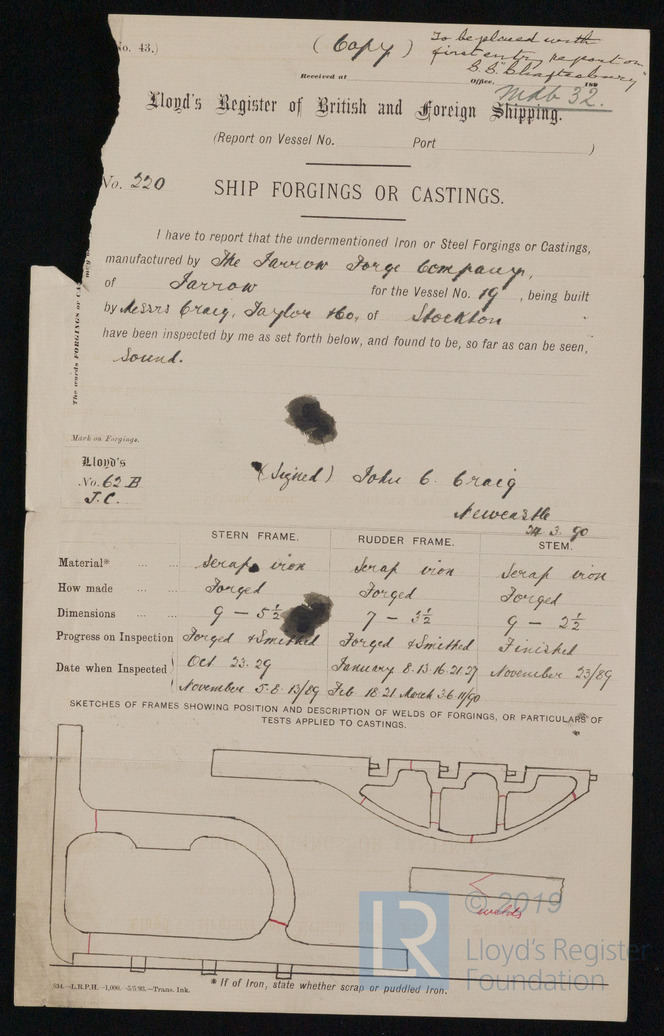 No. 43.)
(Copy)
To be placed with
first entry report on
S.S. "Shaftesbury"
Received at Office, 188
Mdb 32.
Lloyd's Register of British and Foreign Shipping.
(Report on Vessel No. Port )
No. 220
SHIP FORGINGS OR CASTINGS.
I have to report that the undermentioned Iron or Steel Forgings or Castings,
manufactured by The Jarrow Forge Company,
of Jarrow for the Vessel No. 19, being built
by Messrs Craig, Taylor & Co, of Stockton
have been inspected by me as set forth below, and found to be, so far as can be seen,
Sound.
The words FORGINGS or
may be
Mark on Forgings.
Lloyd's
No. 62 B
J.C.
(Signed) John C. Craig
Newcastle
24. 3. 90
STERN FRAME. RUDDER FRAME. STEM.
Material* Scrap iron Scrap iron Scrap iron
How made Forged Forged Forged
Dimensions 9 – 5½ 7 – 3½ 9 – 2½
Progress on Inspection Forged & Smithed Forged & Smithed Finished
Date when Inspected Oct 23. 29 January 8. 13. 16. 21. 27 November 23/89
November 5. 8. 13/89 Feb 18. 21 March 3. 6. 11/90
SKETCHES OF FRAMES SHOWING POSITION AND DESCRIPTION OF WELDS OF FORGINGS, OR PARTICULARS OF
TESTS APPLIED TO CASTINGS.
welds
© 2019
LR
Lloyd's Register
Foundation
* If of Iron, state whether scrap or puddled Iron.
—L.R.P.H.—1,000.—5/5/85.—Trans. Ink.